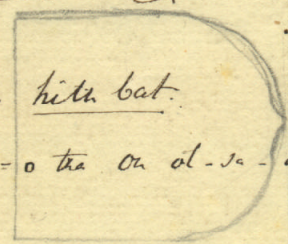 hith bat.
= o tra on ol - sa -